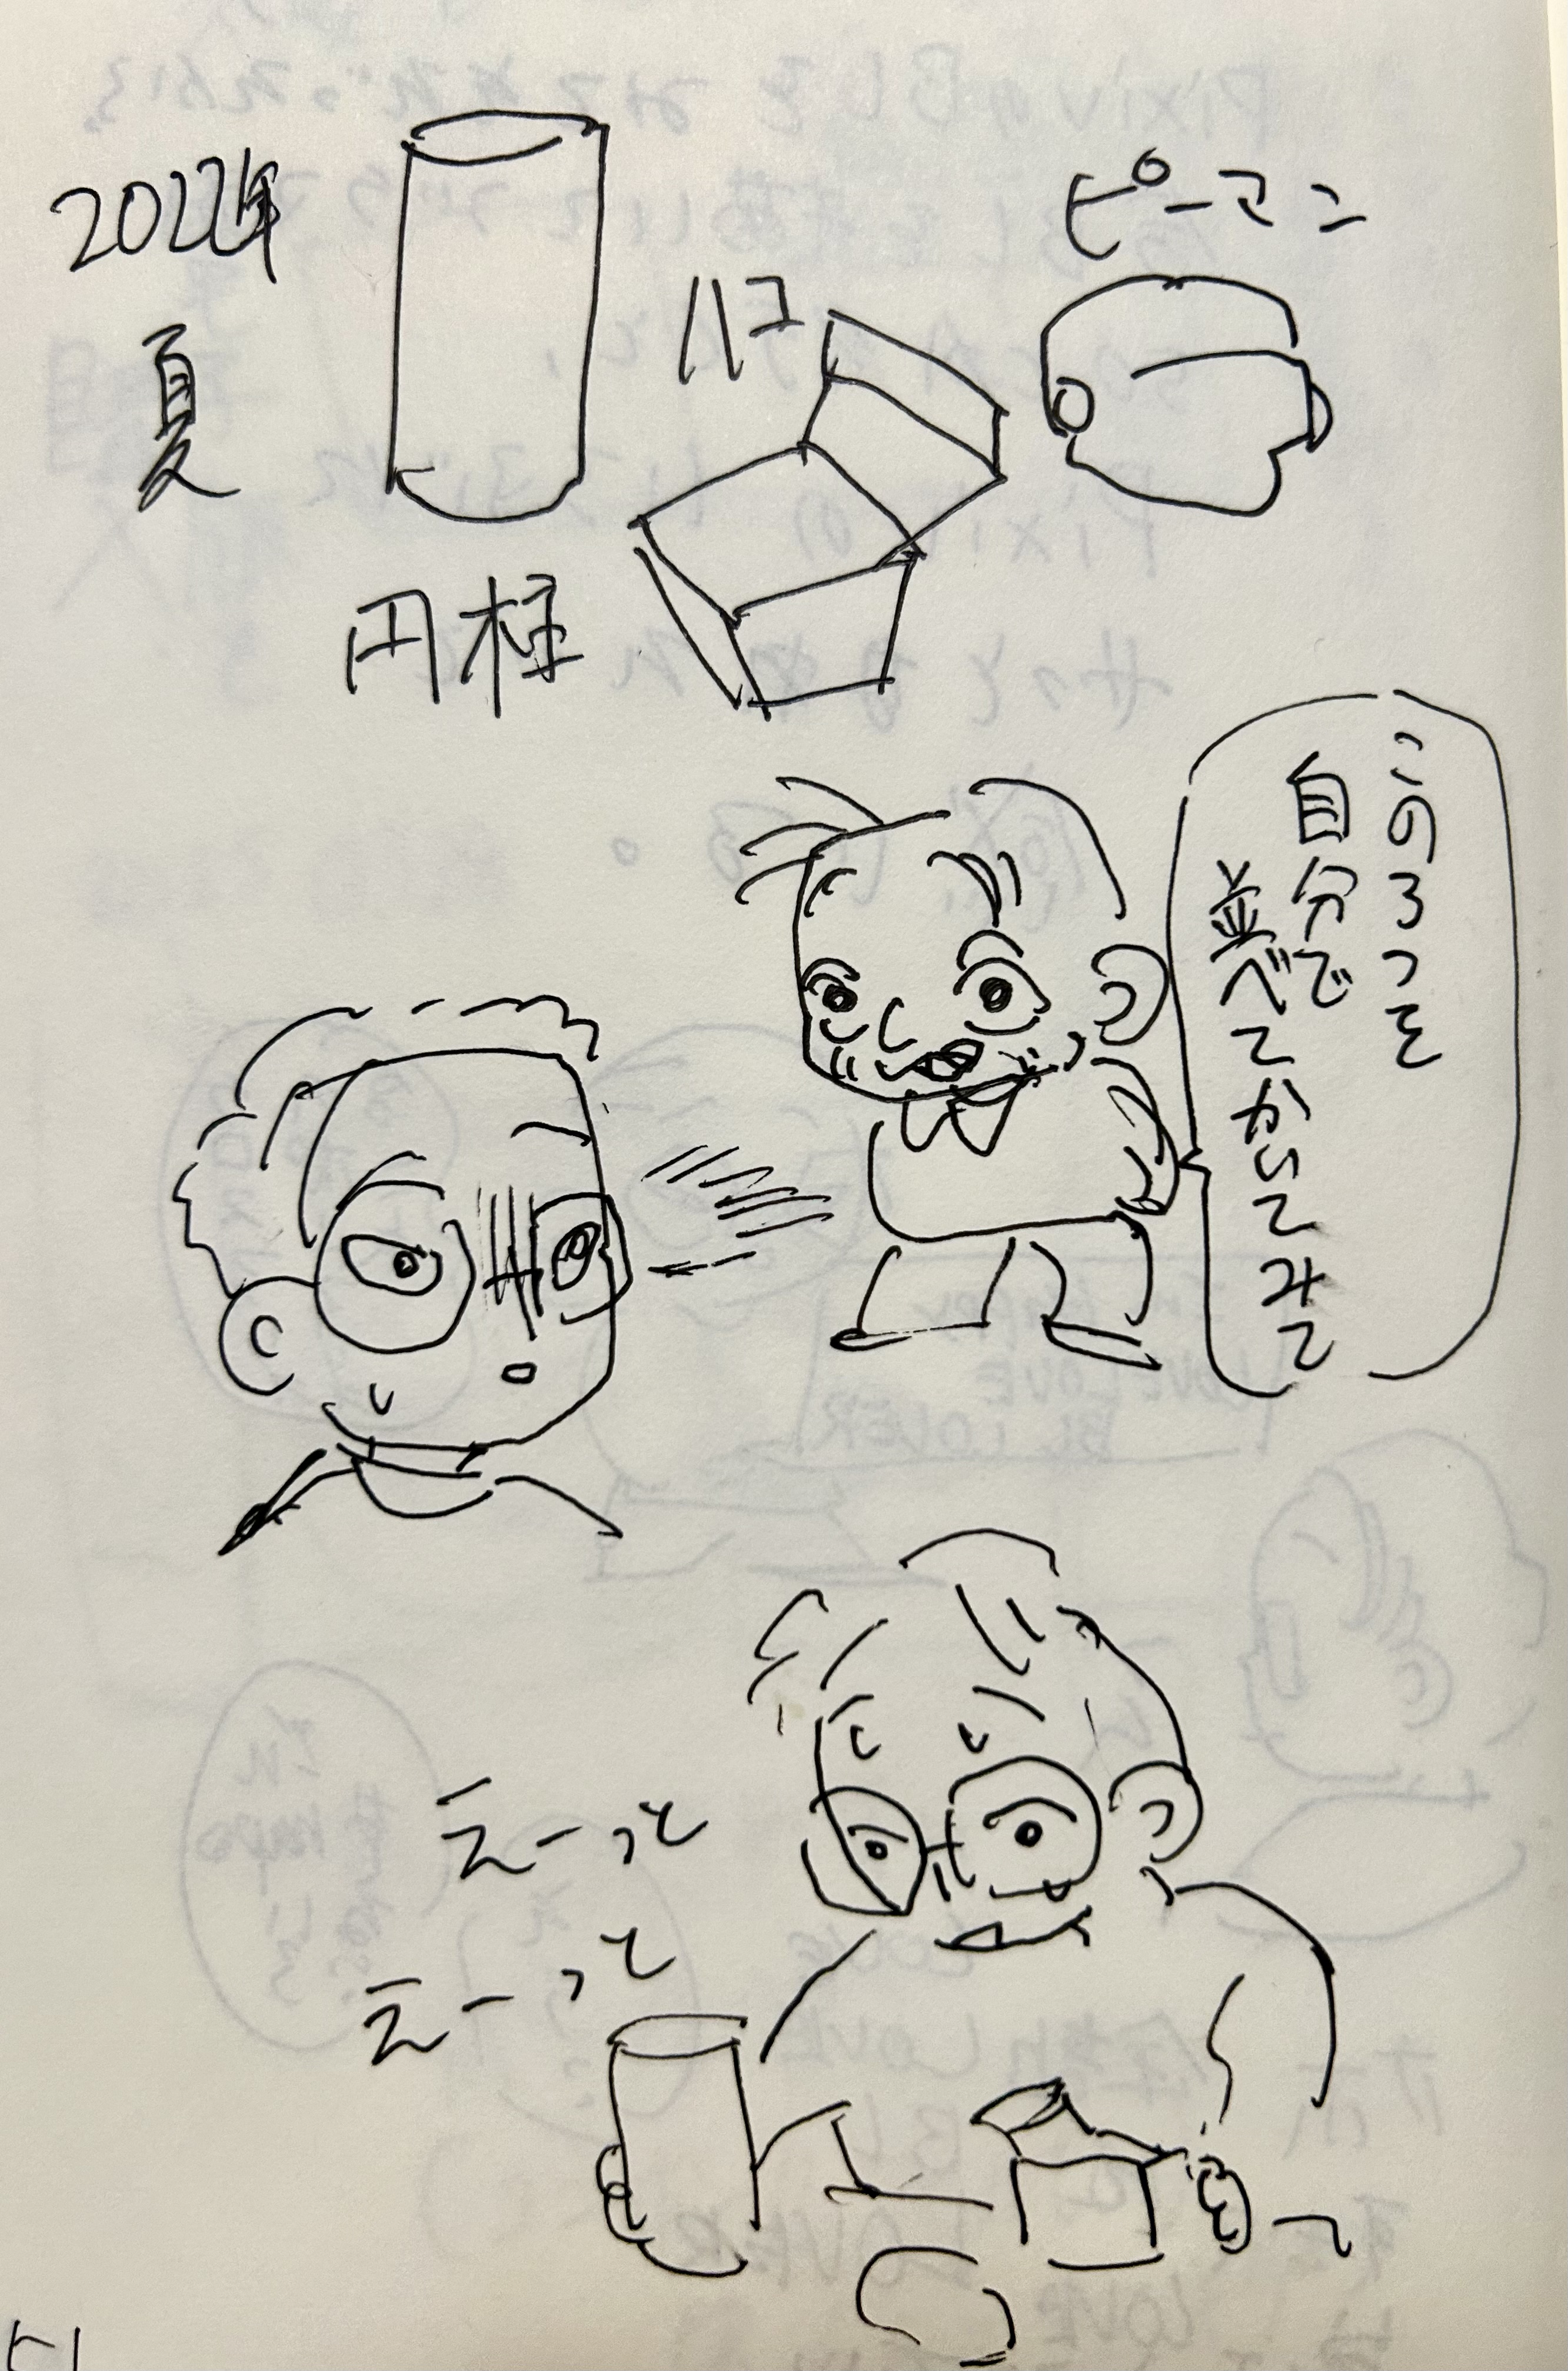 2022年
夏
円柱
ハコ
ピーマン
この3つを
自分で
並べてかいてみて
えーっと
えーっと